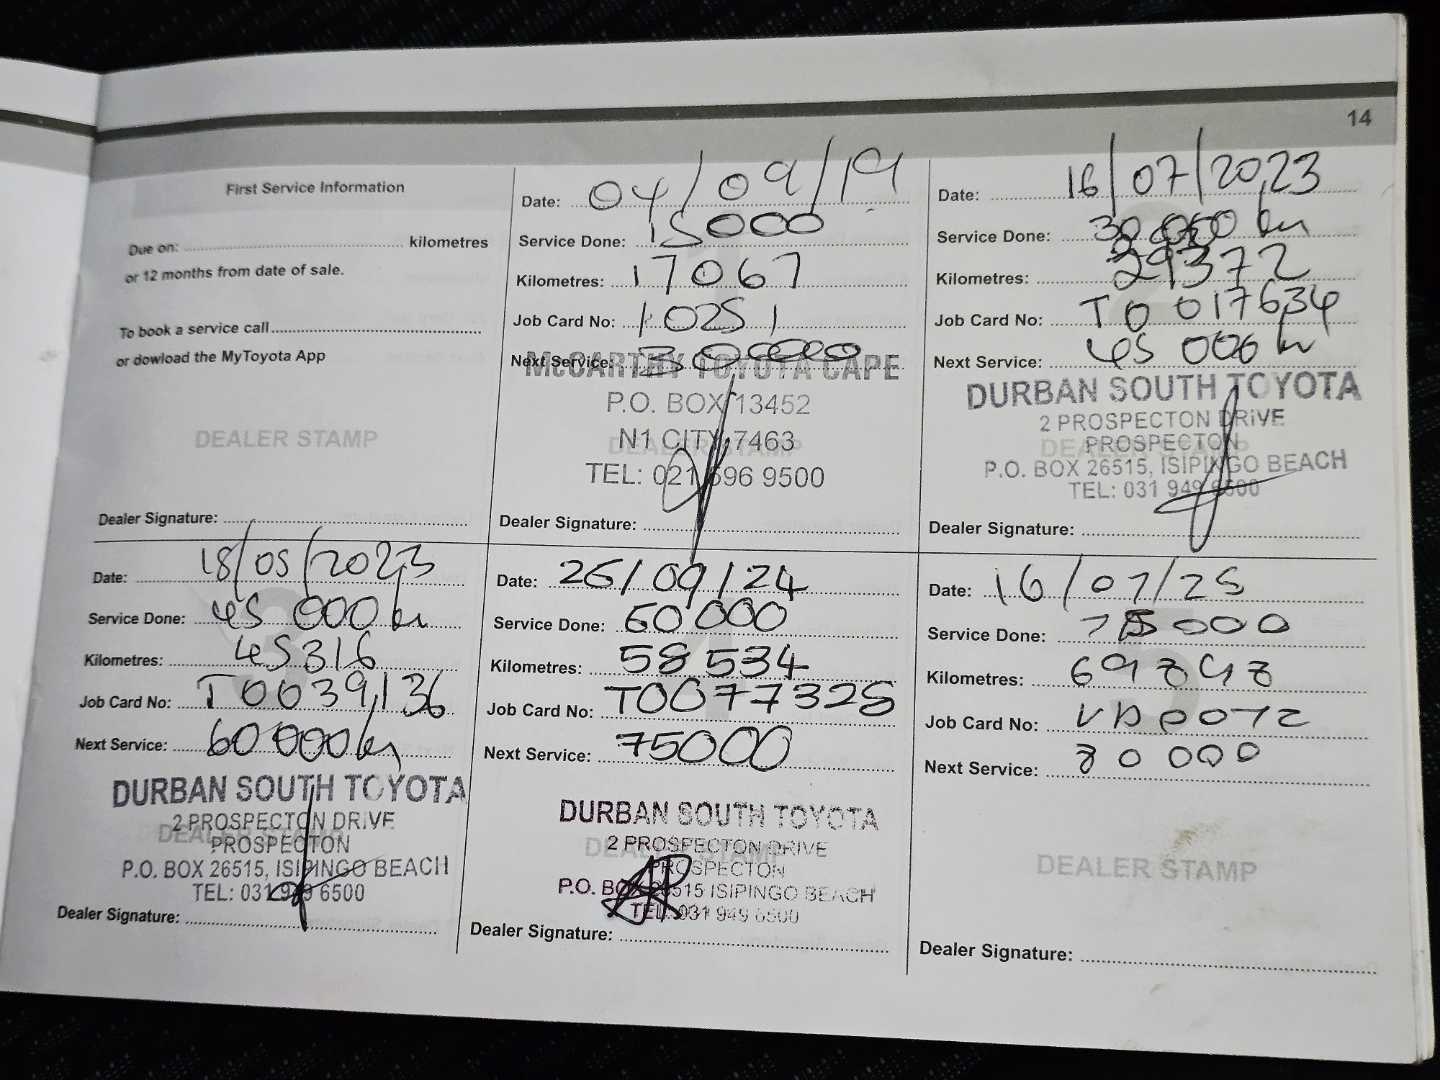 14
First Service Information
Due on: ........ kilometres
or 12 months from date of sale.
To book a service call........
or dowload the MyToyota App
DEALER STAMP
Dealer Signature:
Date: 04/09/19
Service Done: 15000
Kilometres: 17067
Job Card No: 10251
Next Service: 30 0000
McCARTHY TOYOTA CAPE
P.O. BOX 13452
N1 CITY, 7463
DEALER STAMP
TEL: 021 596 9500
Dealer Signature:
Date: 16/07/2023
Service Done: 30 000 km
Kilometres: 29372
Job Card No: T0017634
Next Service: 45 000 km
DURBAN SOUTH TOYOTA
2 PROSPECTON DRIVE
PROSPECTON
DEALER STAMP
P.O. BOX 26515, ISIPINGO BEACH
TEL: 031 949 6500
Dealer Signature:
Date: 18/05/2023
Service Done: 45 000 km
Kilometres: 45316
Job Card No: T0039136
Next Service: 60 000 km
DURBAN SOUTH TOYOTA
2 PROSPECTON DRIVE
DEALER STAMP
PROSPECTON
P.O. BOX 26515, ISIPINGO BEACH
TEL: 031 949 6500
Dealer Signature:
Date: 26/09/24
Service Done: 60 000
Kilometres: 58 534
Job Card No: T0077328
Next Service: 75000
DURBAN SOUTH TOYOTA
2 PROSPECTON DRIVE
DEALER STAMP
PROSPECTON
P.O. BOX 26515 ISIPINGO BEACH
TEL: 031 949 6500
Dealer Signature:
Date: 16/07/25
Service Done: 75000
Kilometres: 69898
Job Card No:
Next Service: 80 000
DEALER STAMP
Dealer Signature: